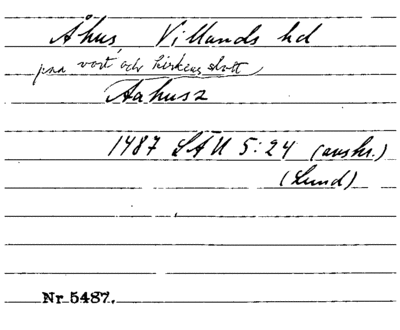 Åhus, Villands hd
paa vort och kirkens slott
Aahusz
1487 LÄU 5:24 (avskr.)
(Lund)
Nr 5487.